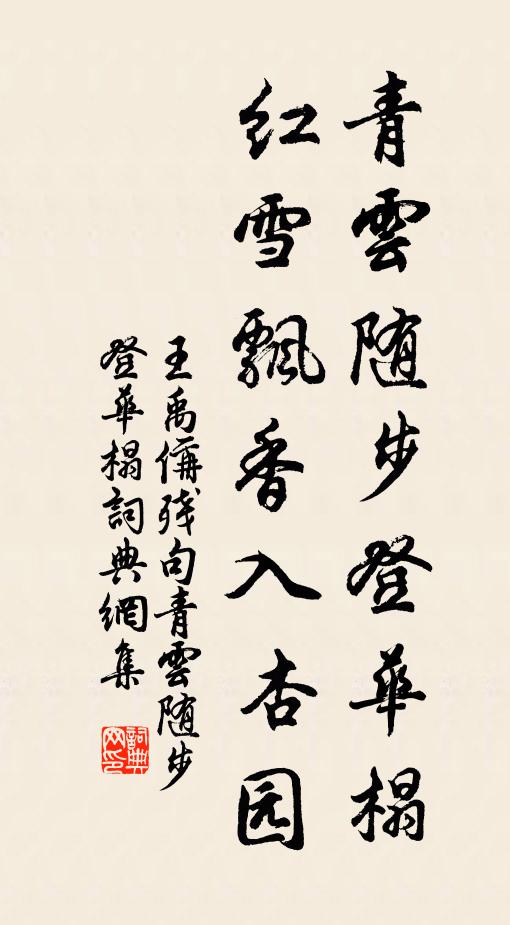 青雲随步登華榻
紅雪飄香入杏园
王禹偁残句青雲随步
登華榻詞典網集
詞典
网印